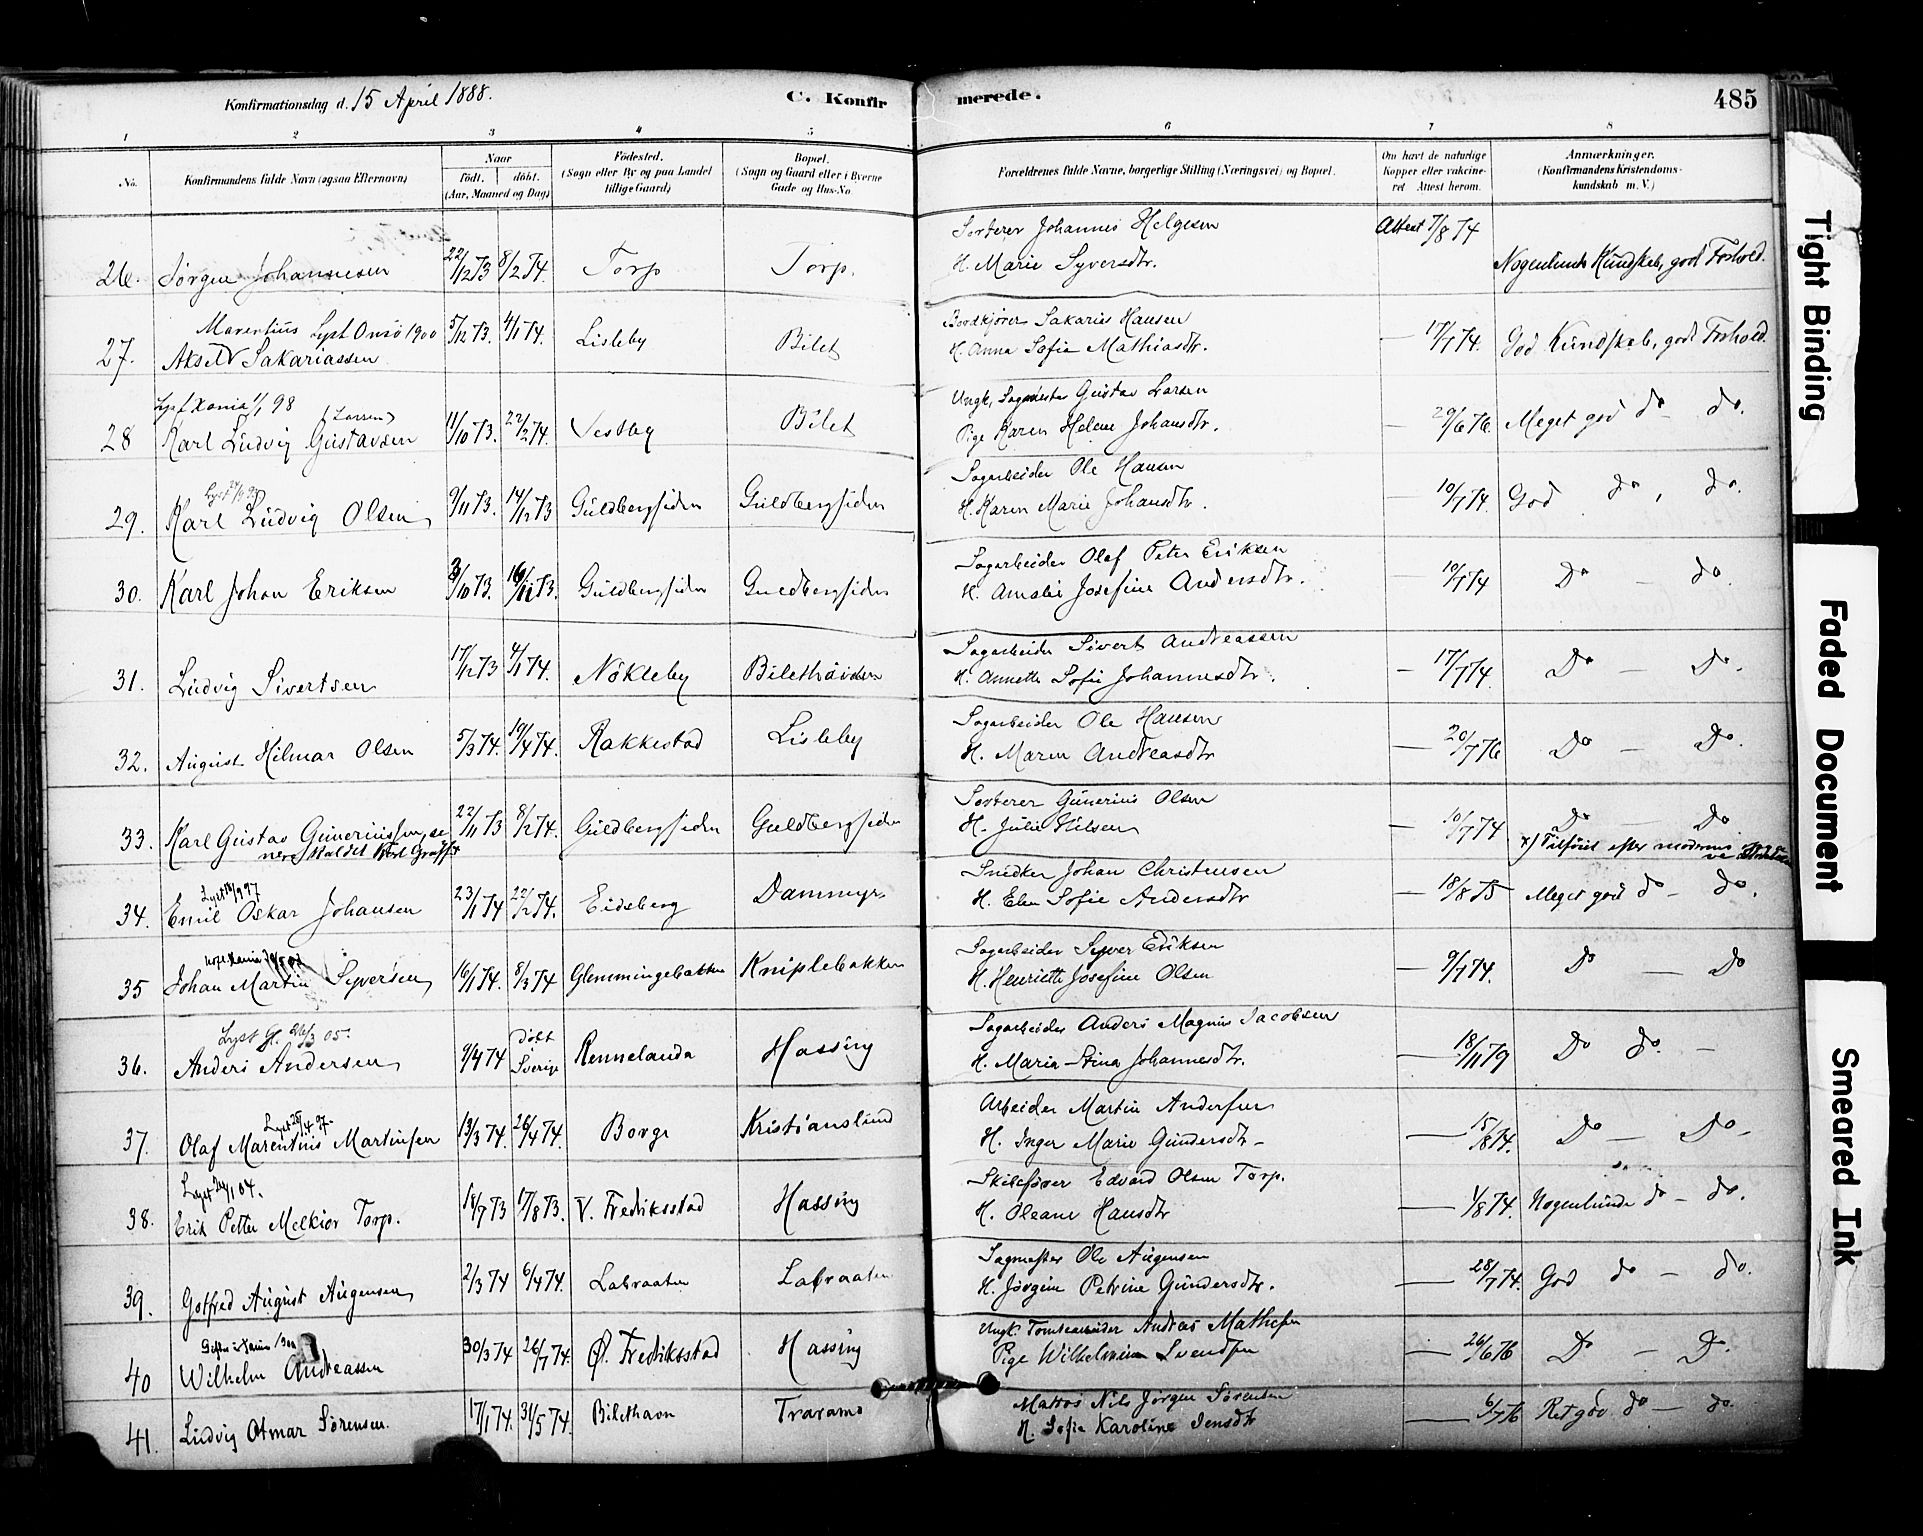 Konfirmationsdag d. 15 April 1888.
C. Konfirmerede.
485
1 2 3 4 5 6 7 8
No.
Konfirmandens fulde Navn (ogsaa Efternavn)
Naar
født. døbt.
(Aar, Maaned og Dag)
Födested.
(Sogn eller By og paa Landet
tillige Gaard)
Bopæl.
(Sogn og Gaard eller i Byerne
Gade og Hus-No.
Forældrenes fulde Navne, borgerlige Stilling (Næringsvei) og Bopæl.
Om havt de naturlige
Kopper eller vakcine-
ret Attest herom.
Anmærkninger.
(Konfirmandens Kristendoms-
kundskab m. V.)
Sorterer Johannes Helgesen Attest 7/8 74
26. Jörgen Johannesen 22/12 73 8/2 74. Torp Torp. H. Marie Syversdtr. Nogenlunde Kundskab, god Forhold.
Marentius Lyst Onsö 1900 Bordkjörer Sakarias Hansen
27. Aksel Sakariassen 5/12 73. 4/1 74. Lisleby Bilet H. Anna Sofie Mathiasdtr. — 17/7 74. God Kundskab, godt Forhold.
Lyst Xania 1/1 98 (Larsen) Ungk. Sagmester Gustav Larsen
28 Karl Ludvig Gustavsen 11/10 73. 22/2 74. Vestby Bilet Pige Karen Helene Johansdtr. — 29/6 76. Meget god do — do.
Sagarbeider Ole Hansen
29. Karl Ludvig Olsen 9/11 73. 14/12 73 Guldbergsiden Guldbergsiden H. Karen Marie Johansdtr. — 10/7 74. God do, do.
Sagarbeider Olaf Peter Eriksen
30. Karl Johan Eriksen 3/10 73. 16/11 73. Guldbergsiden Guldbergsiden H. Amalie Josefine Andersdtr. — 10/7 74 Do — do.
Sagarbeider Sivert Andreassen
31. Ludvig Sivertsen 17/12 73 4/1 74. Nökleby Bilethöiden H. Annette Sofie Johannesdtr. — 17/7 74 Do — Do.
Sagarbeider Ole Hansen
32. August Hilmar Olsen 5/3 74. 19/4 74. Rakkestad Lisleby H. Maren Andreasdtr — 20/7 76 Do — Do.
Sorterer Gunerius Olsen
33. Karl Gustav Guneriussen, se 22/11 73 8/2 74. Guldbergsiden Guldbergsiden H. Julie Nilsen — 10/7 74 Do — Do
x) Tilföiet efter moderens
Lyst 18/9 97 Snedker Johan Christensen
34. Emil Oskar Johansen 23/1 74 22/2 74. Eidsberg Dammyr H. Elen Sofie Andersdtr — 18/8 75 Meget god do — do.
Sagarbeider Syver Eriksen
35 Johan Martin Syversen 16/1 74. 8/3 74 Glemmingebakken Kniplebakken H. Henriette Josefine Olsen — 9/7 74. Do — Do
Lyst Gl. 26/3 05. Döbt Sagarbeider Anders Magnus Jacobsen
36. Anders Andersen 9/4 74 Sverige Rennelanda Hassing H. Maria-Stina Johannesdtr. — 18/11 79 Do do. —
Lyst 25/4 97. Arbeider Martin Andersen
37. Olaf Marentius Martinsen 13/3 74. 26/4 74. Borge Kristianslund H. Inger Marie Gundersdtr — — 15/8 74. Do — Do —
Lyst 24/1 04. Skibsförer Edvard Olsen Torp.
38. Erik Petter Melkior Torp. 18/7 73 17/8 73. V. Fredriksstad Hassing H. Oleane Hansdtr — 1/8 74. Nogenlunde do — do.
Sagmester Ole Augensen
39. Gotfred August Augensen 2/3 74 6/4 74. Labraaten Labraaten H. Jörgine Petrine Gundersdtr. — 28/7 74. God do — do.
Ungk. Tomtearbeider Andreas Mathesen
40 Wilhelm Andreassen 30/3 74 26/7 74. Ø. Fredriksstad Hassing Pige Wilhelmine Svendsen — 26/6 76 Do — D.
Matros Nils Jörgen Sörensen
41. Ludvig Otmar Sörensen. 17/1 74. 31/5 74. Bilethavn Traramo H. Sofie Karoline Jensdtr — 6/7 76 Ret god do — do.
Tight Binding
Faded Document
Smeared Ink